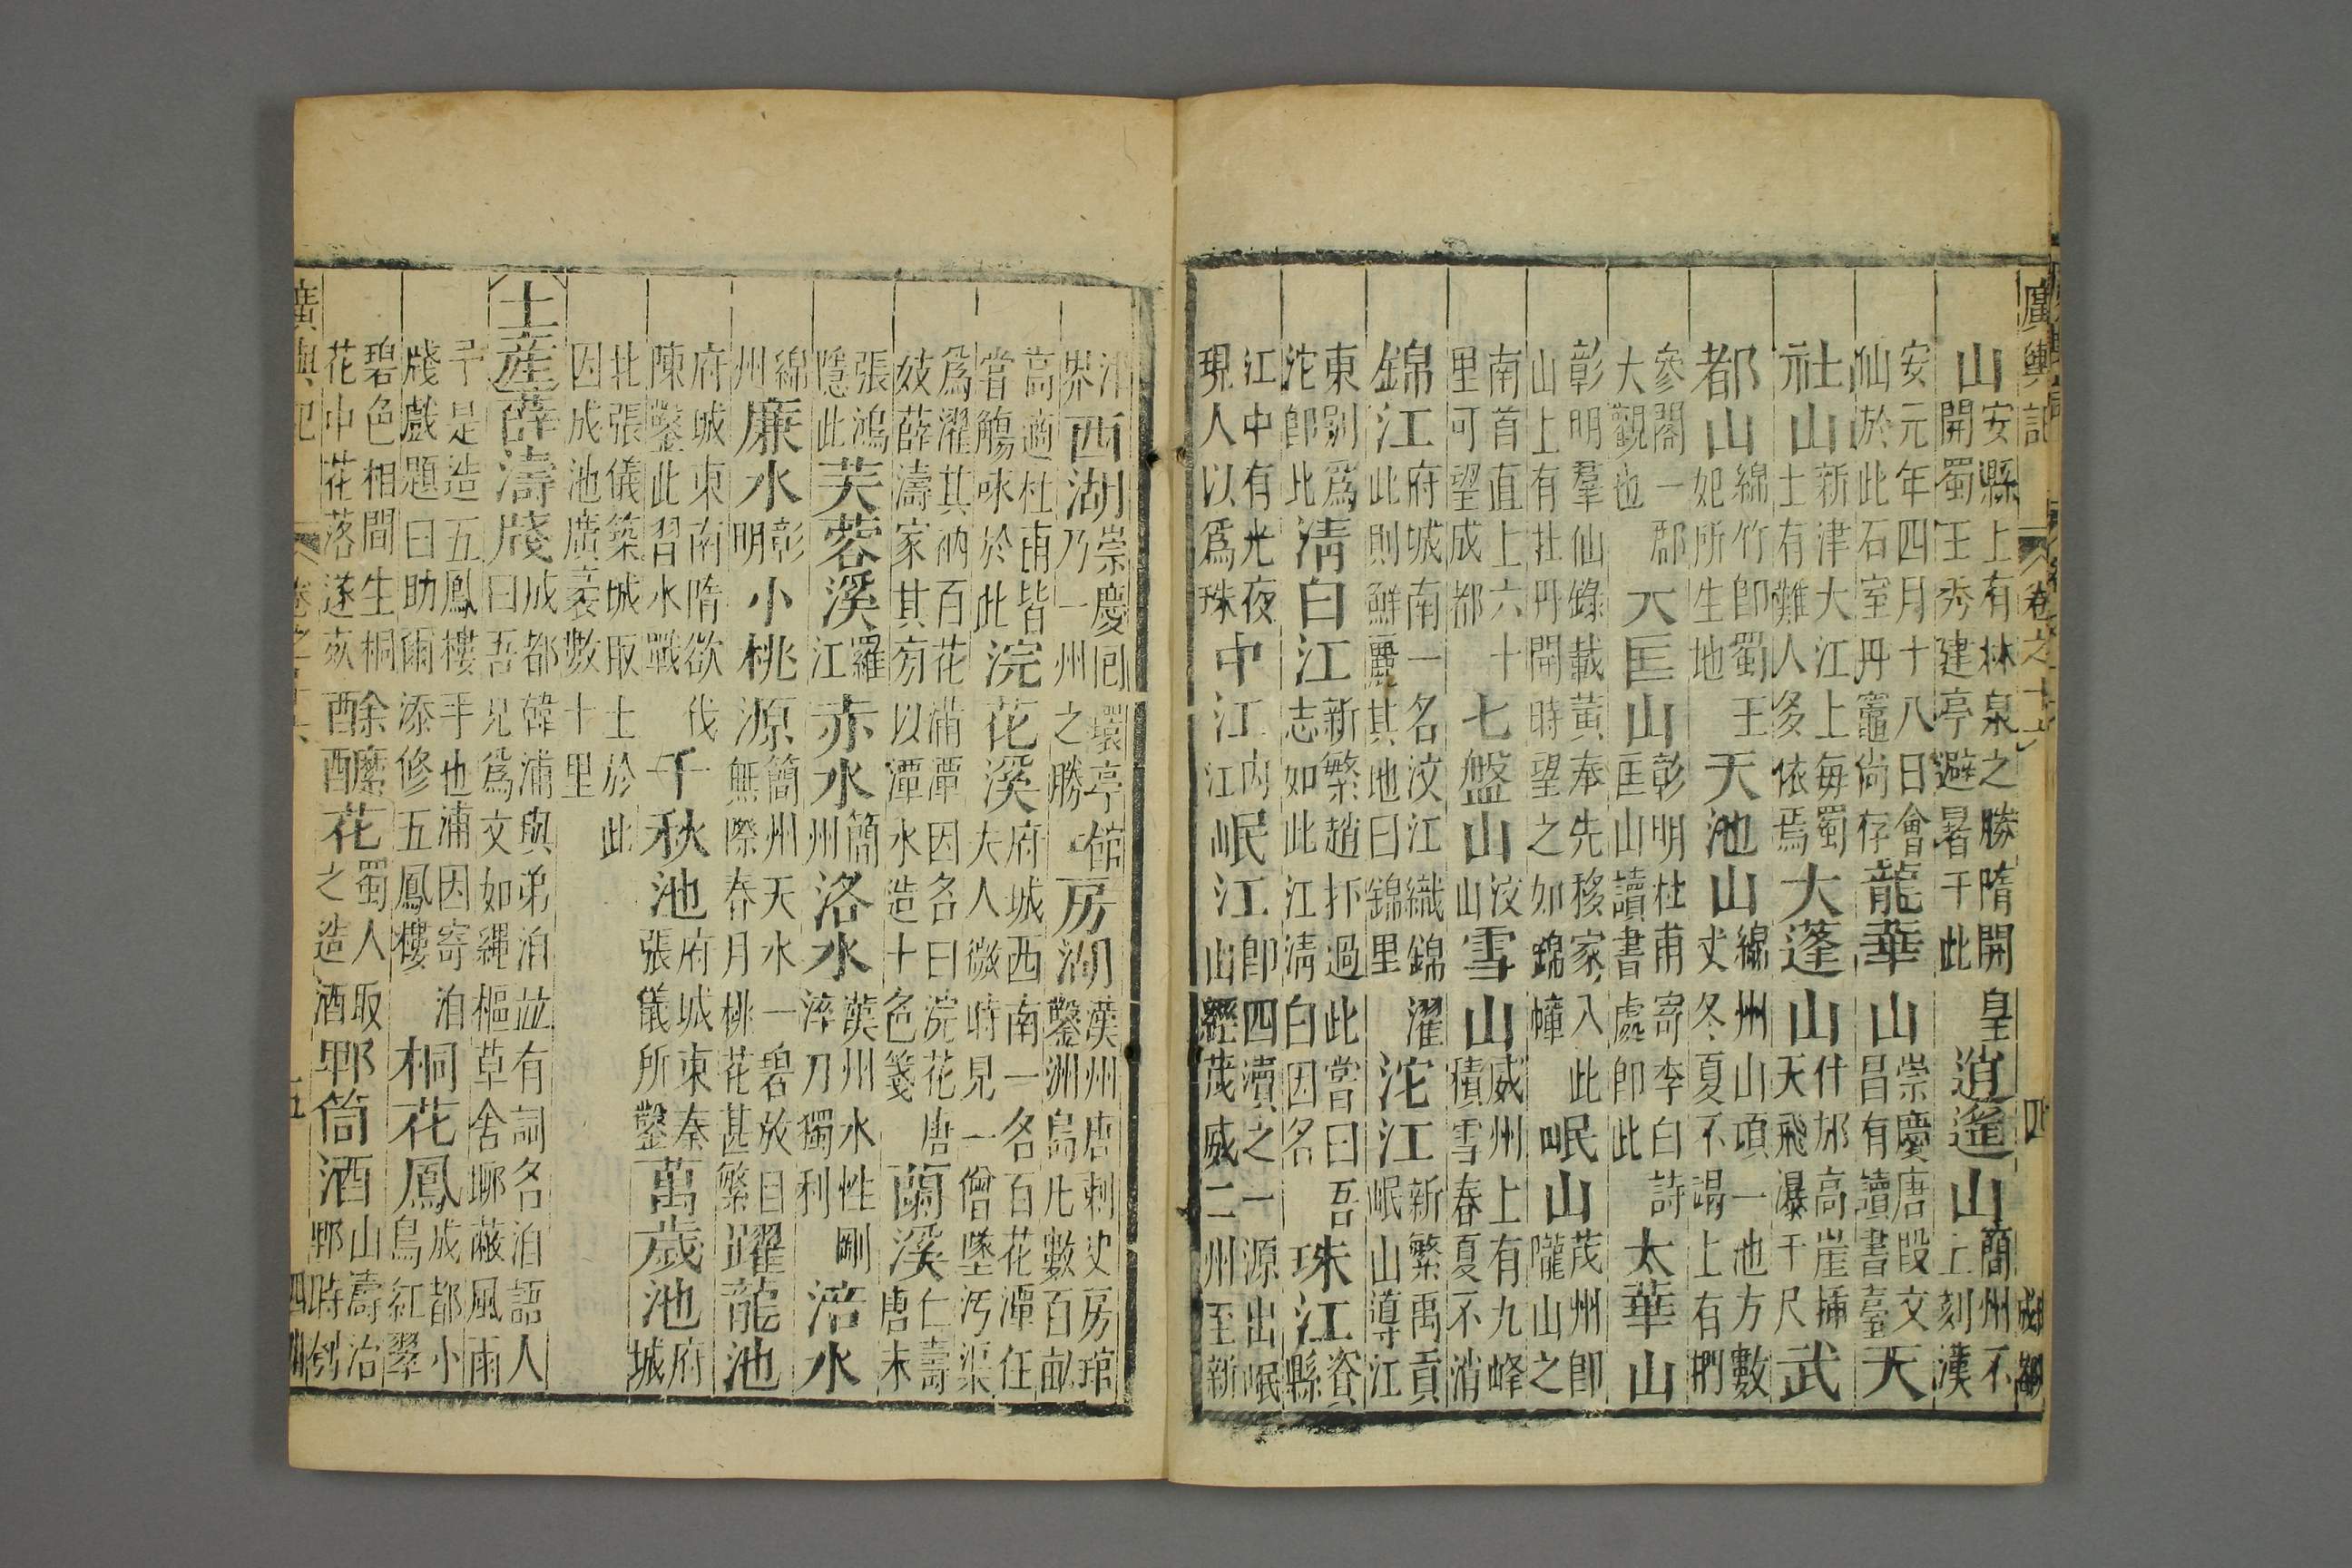 廣輿記 卷之十六 四 成都
山安縣上有林泉之勝隋開皇開蜀王秀建亭避暑于此逍遙山簡州不上刻漢
安元年四月十八日會仙於此石室丹竈尚存龍華山崇慶唐段文昌有讀書臺天
社山新津大江上每蜀士有難人多依焉大蓬山什邡高崖插天飛瀑千尺武
都山綿竹卽蜀王妃所生地天池山綿州山項一池方數丈冬夏不竭上有捫
參閣一郡大觀也大匡山彰明杜甫寄李白詩匡山讀書處卽此太華山
彰明羣仙錄載黃奉先移家入此山上有牡丹開時望之如錦幛岷山茂州卽隴山之
南首直上六十里可望成都七盤山汶山雪山威州上有九峰積雪春夏不消
錦江府城南一名汶江織錦濯此則鮮麗其地曰錦里沱江新繁禹貢岷山導江
東別爲沱卽此淸白江新繁趙抃過此嘗曰吾志如此江淸白因名珠江資縣
江中有光夜現人以爲珠中江內江岷江卽四瀆之一源出岷山經茂威二州至新
津界西湖崇慶囘環亭館乃一州之勝房湖漢州唐刺史房琯鑿洲島凡數百畝
高適杜甫皆嘗觴咏於此浣花溪府城西南一名百花潭任夫人微時見一僧墜汚渠
爲濯其衲百花滿潭因名曰浣花唐妓薛濤家其旁以潭水造十色箋蘭溪仁壽唐末
張鴻隱此芙蓉溪羅江赤水簡州洛水漢州水性剛淬刀獨利涪水
綿州廉水彰明小桃源簡州天水一碧放目無際春月桃花甚繁躍龍池
府城東南隋欲伐陳鑿此習水戰千秋池府城東秦張儀所鑿萬歲池府城
北張儀築城取土於此因成池廣袤數十里
土產薛濤牋成都韓浦與弟洎竝有詞名洎語人曰吾兄爲文如繩樞草舍聊蔽風雨
予是造五鳳樓手也浦因寄洎牋戲題曰助爾添修五鳳樓桐花鳳成都小鳥紅翠
碧色相間生桐花中花落遂亥酴醾酒蜀人取花之造酒郫筒酒山濤治郫時刳
廣輿記 卷之十六 五 四川